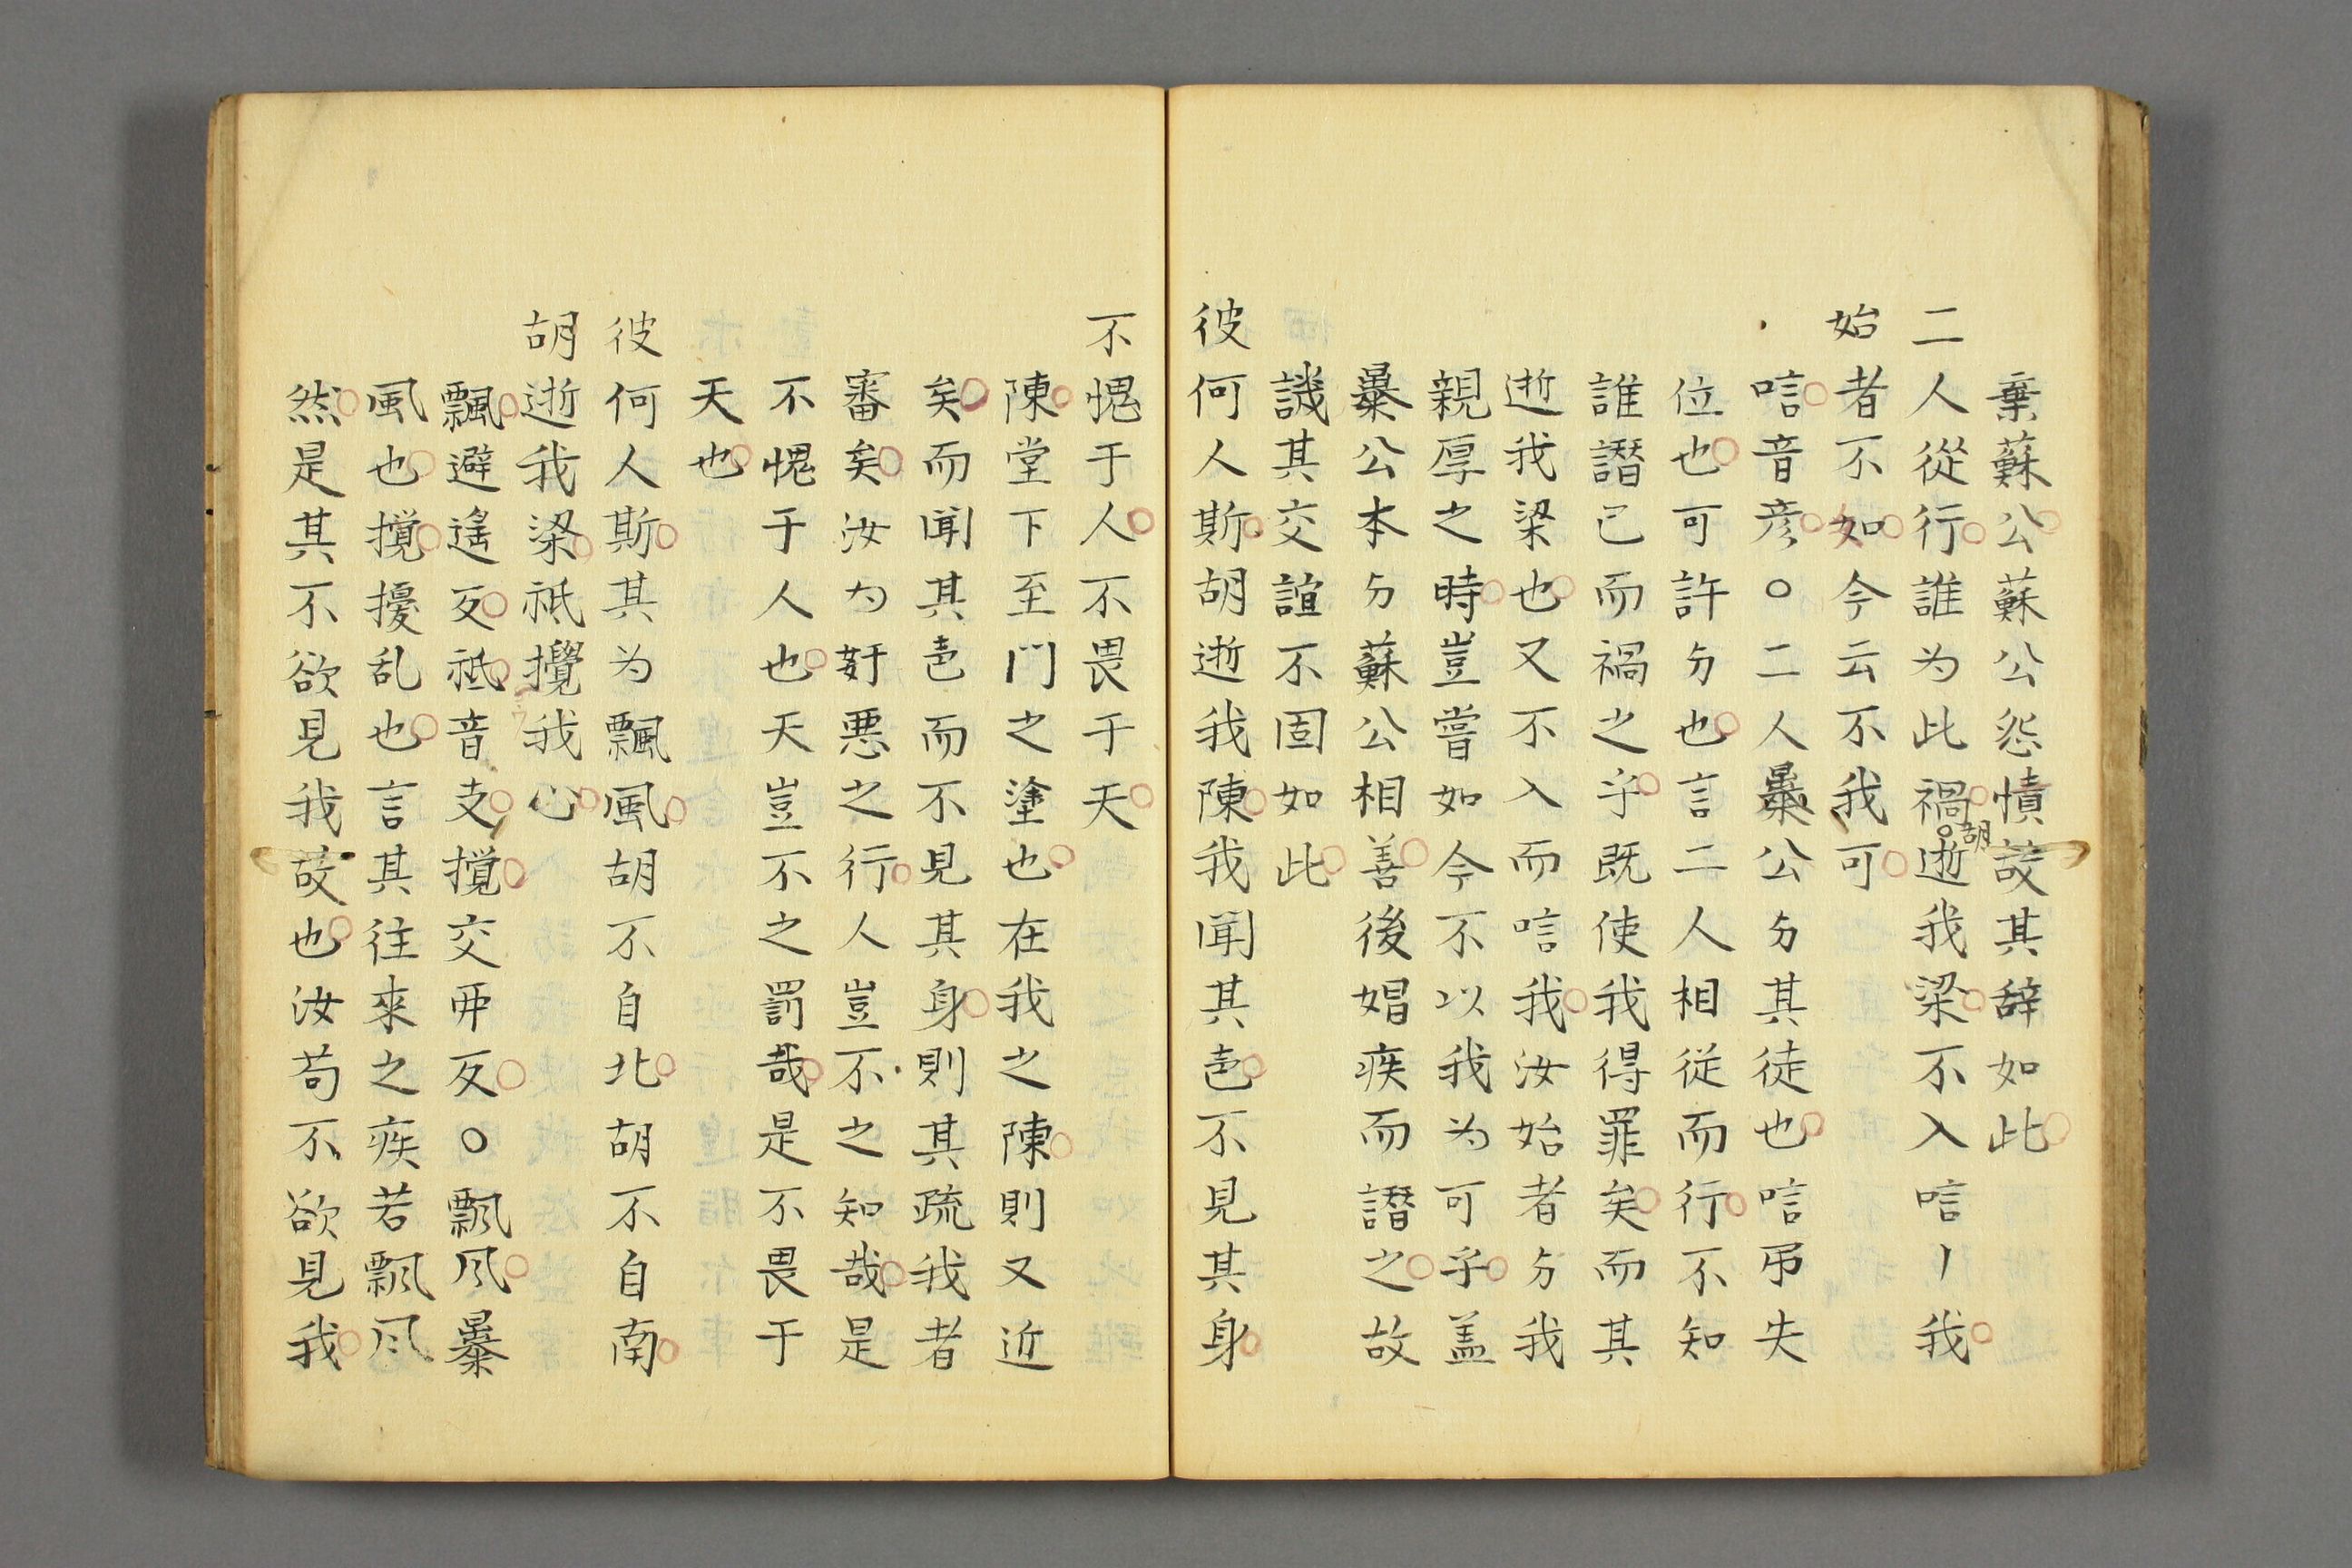 棄蘇公蘇公怨憤故其辞如此
二人從行誰为此禍胡逝我梁不入唁丨我
始者不如今云不我可
唁音彦○二人暴公与其徒也唁弔失
位也可許与也言二人相従而行不知
誰譖己而禍之乎既使我得罪矣而其
逝我梁也又不入而唁我汝始者与我
親厚之時豈嘗如今不以我为可乎盖
暴公本与蘇公相善後娼疾而譖之故
譏其交誼不固如此
彼何人斯胡逝我陳我聞其声不見其身
不愧于人不畏于天
陳堂下至門之塗也在我之陳則又近
矣而聞其声而不見其身則其疏我者
審矣汝为奸悪之行人豈不之知哉是
不愧于人也天豈不之罰哉是不畏于
天也
彼何人斯其为飄風胡不自北胡不自南
胡逝我梁祇攪我心
飄避遙反祗音支撹交卯反○飄风暴
風也撹擾乱也言其往來之疾若飄风
然是其不欲見我故也汝苟不欲見我